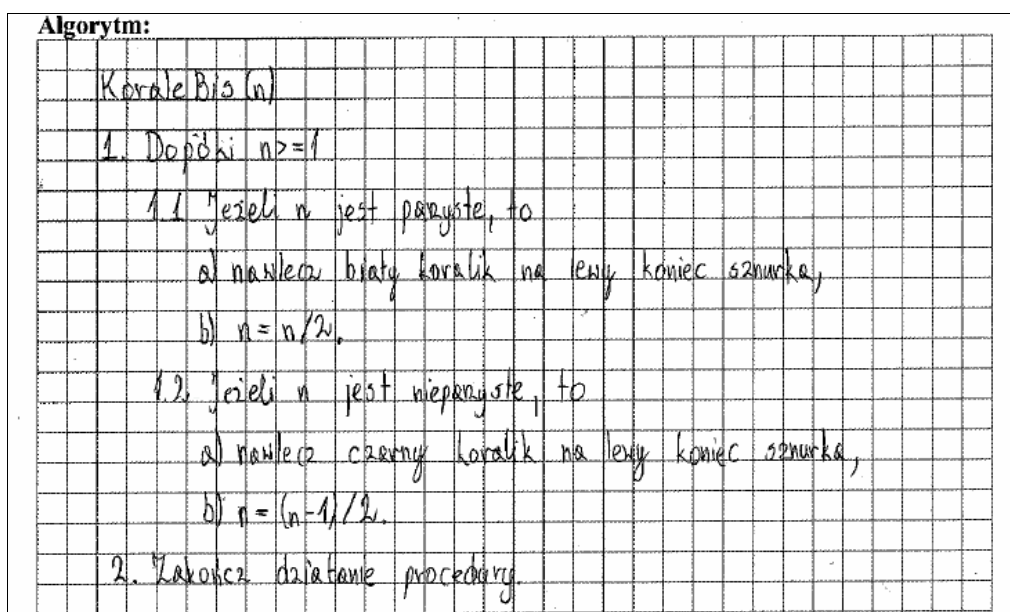 Algorytm:
Korale Bis (n)
1. Dopóki n>=1
1.1 Jeżeli n jest parzyste, to
a) nawlecz biały koralik na lewy koniec sznurka,
b) n = n/2.
1.2. Jeżeli n jest nieparzyste, to
a) nawlecz czarny koralik na lewy koniec sznurka,
b) n = (n-1)/2.
2. Zakończ działanie procedury.